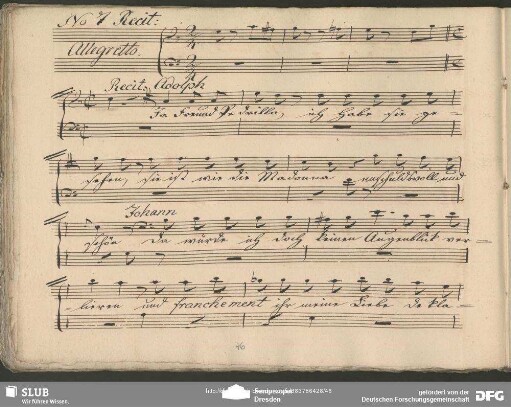 No 7 Recit:
Allegretto.
Recit: Adolph
Ja Freund Pedrillo, ich habe sie ge-
sehen, sie ist wie die Madonna unschuldsvoll und
Johann
schön da würde ich doch keinen Augenblick ver-
-lieren und franchement ihr meine Liebe dekla-
SLUB
Wir führen Wissen.
Dresden
gefördert von der
Deutschen Forschungsgemeinschaft
DFG